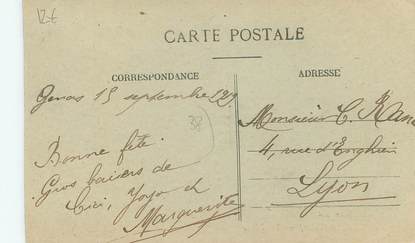 12€
CARTE POSTALE
CORRESPONDANCE
ADRESSE
Genas 15 septembre 1919
38
Bonne fête.
Gros baisers de
Cici, Yoyo et
Marguerite
Monsieur C.
4, rue d'Enghien
Lyon